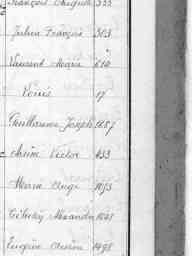 François Auguste 355
Julien François 363
Vincent Marie 614
Louis 17
Guillaume Joseph 1657
Victor 433
Marie Ange 1073
Alexandre 1041
Eugène 1498